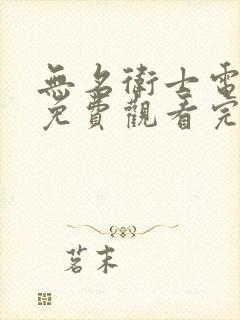 無名衛士電
免費觀看完
茗末